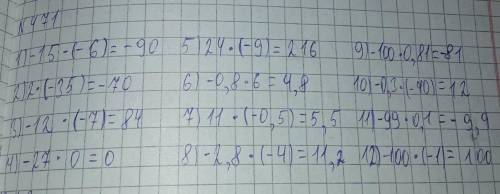 №471
1) -15·(-6)=-90 5) 24·(-9)=216 9) -100·0,81=-81
2) 2·(-35)=-70 6) -0,8·6=4,8 10) -0,3·(-40)=12
3) -12·(-7)=84 7) 11·(-0,5)=5,5 11) -99·0,1=-9,9
4) -27·0=0 8) -2,8·(-4)=11,2 12) -100·(-1)=100